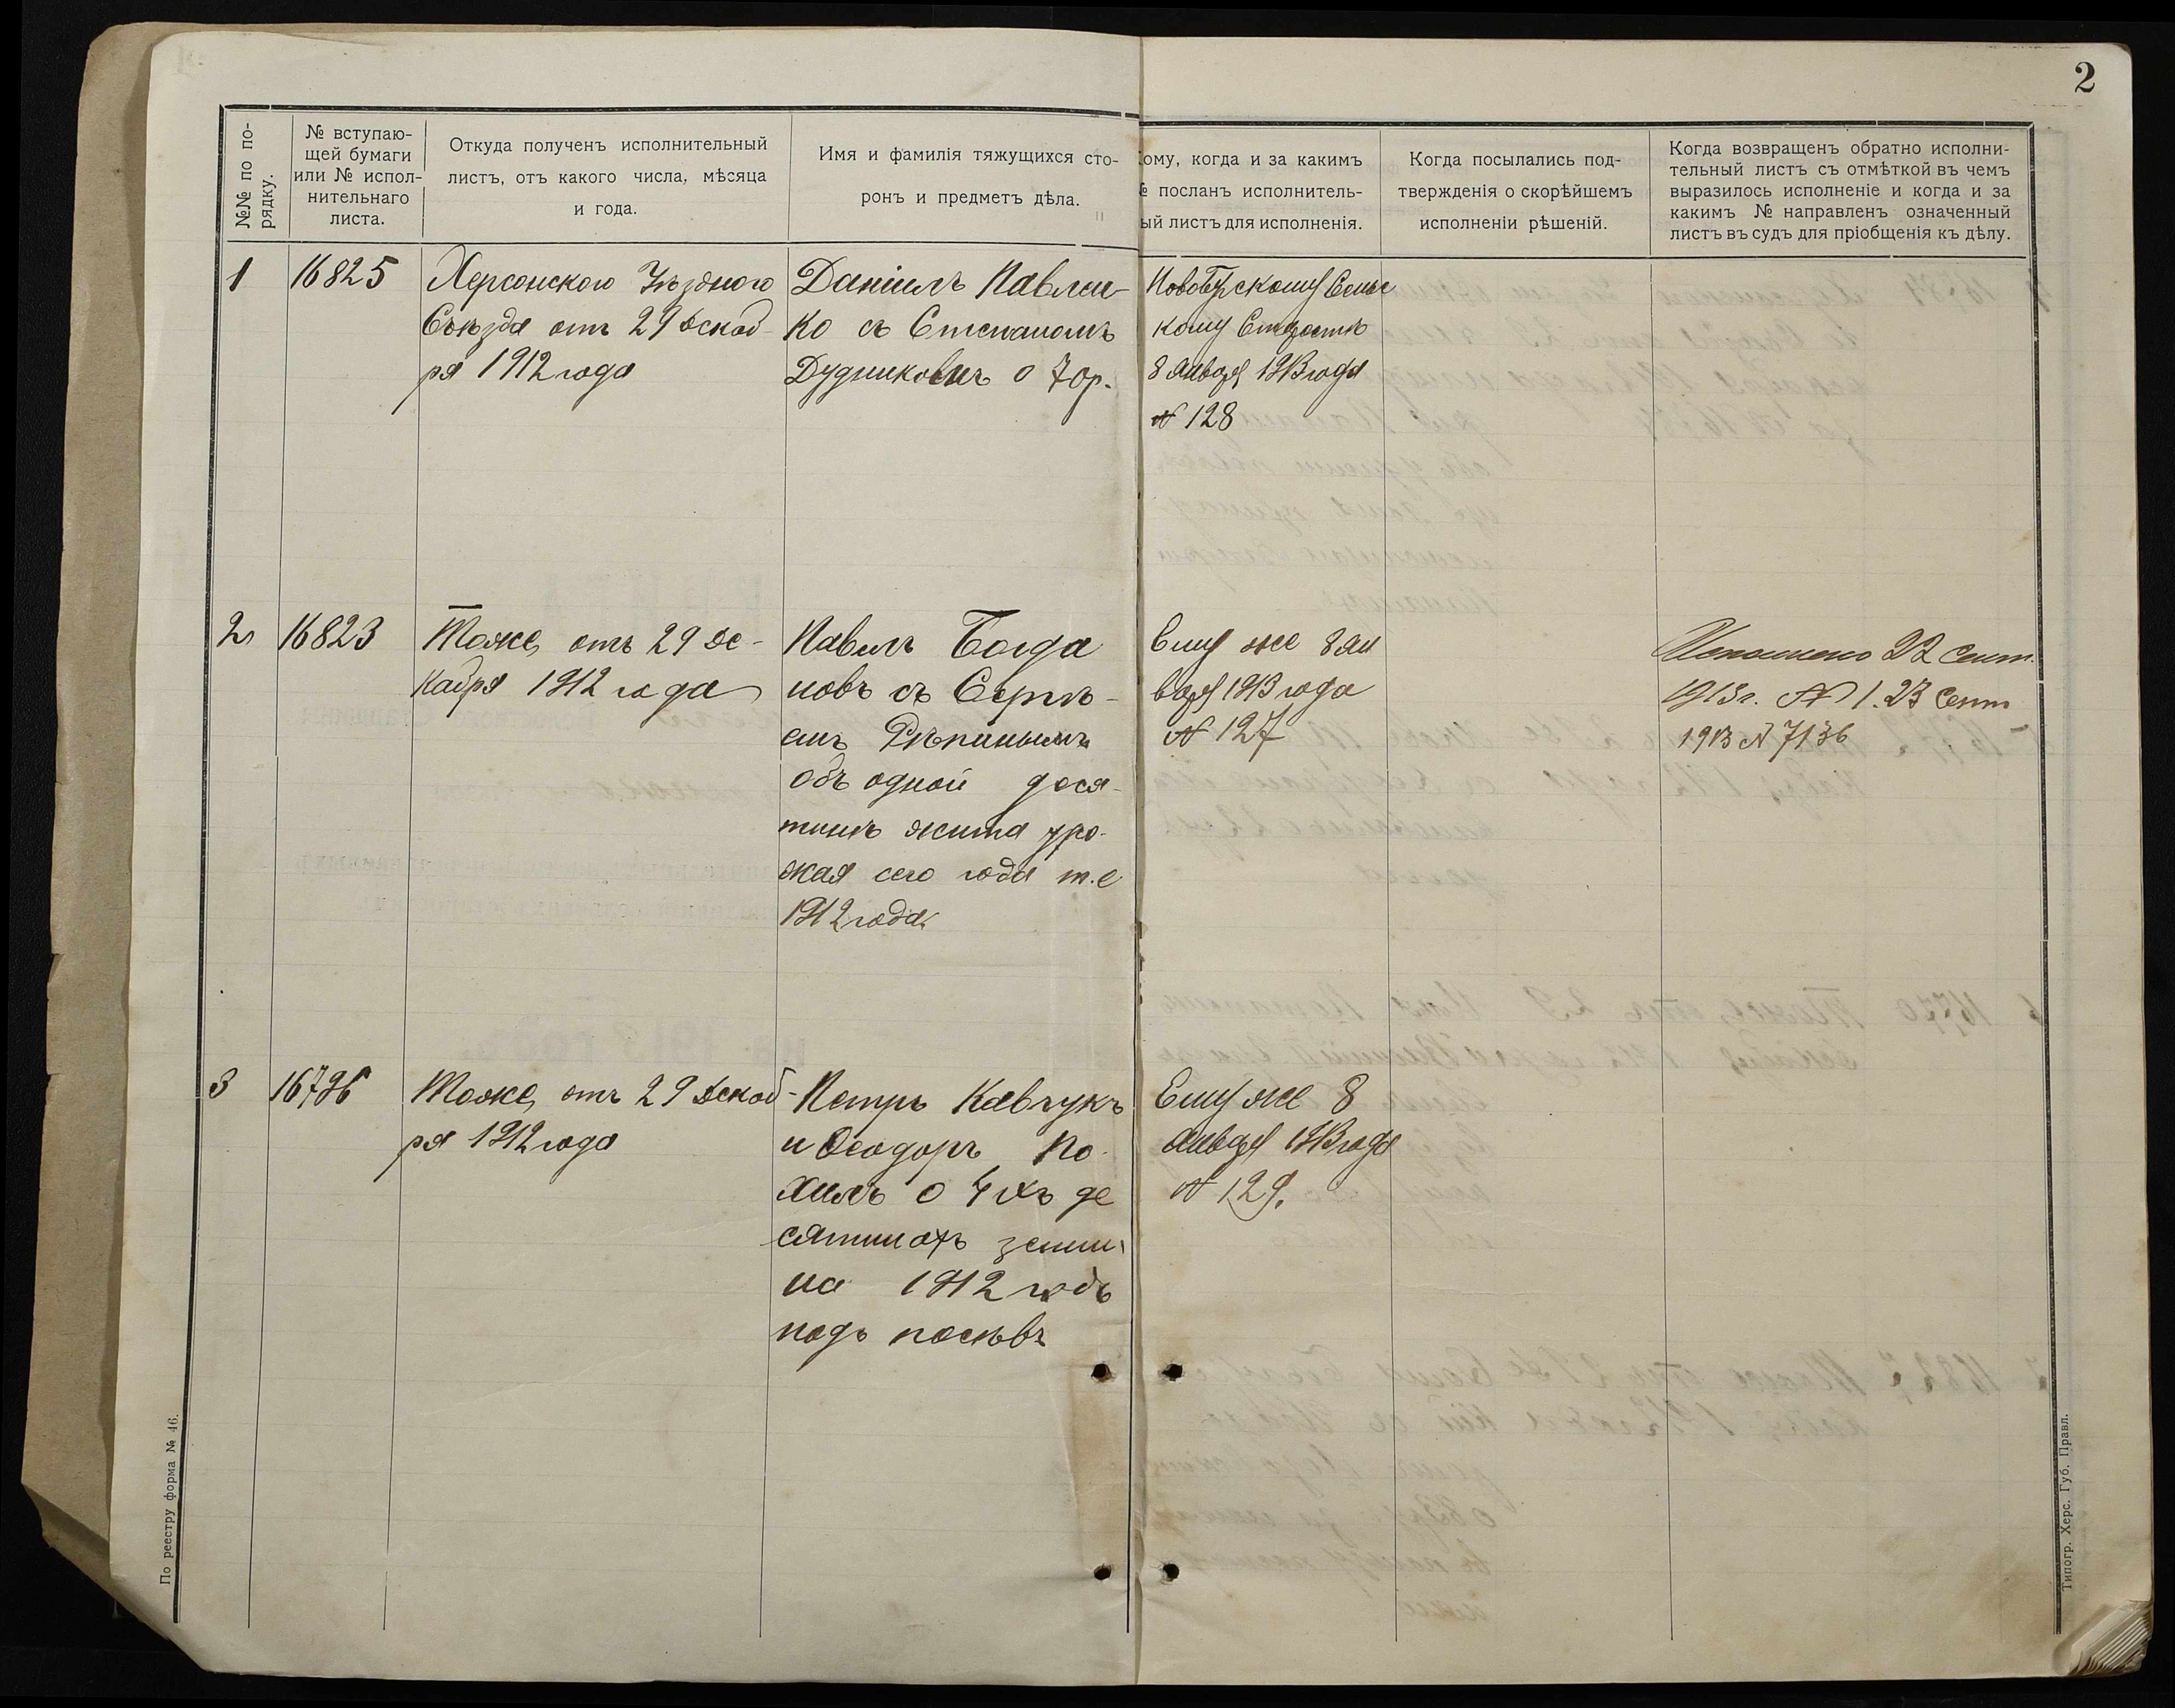 2
№№ по по-
рядку.
№ вступаю-
щей бумаги
или № испол-
нительнаго
листа.
Откуда полученъ исполнительный
листъ, отъ какого числа, мѣсяца
и года.
Имя и фамилія тяжущихся сто-
ронъ и предметъ дѣла.
ому, когда и за какимъ
№ посланъ исполнитель-
ый листъ для исполненія.
Когда посылались под-
твержденія о скорѣйшемъ
исполненіи рѣшеній.
Когда возвращенъ обратно исполни-
тельный листъ съ отмѣткой въ чемъ
выразилось исполненіе и когда и за
какимъ № направленъ означенный
листъ въ судъ для пріобщенія къ дѣлу.
1
16825
Херсонскаго Уѣзднаго
Съѣзда отъ 29 декаб-
ря 1912 года
Даніилъ Павлен-
ко съ Степаномъ
Дудниковымъ о 70 р.
Новобугскому Сельс
кому Старостѣ
8 Января 1913 года
№ 128
2
16823
Тоже, отъ 29 де-
кабря 1912 года
Павелъ Богда
новъ съ Сергѣ-
емъ Рѣпинымъ
объ одной деся-
тинѣ жита уро-
жая сего года т.е
1912 года.
Ему же 8 Ян
варя 1913 года
№ 127
Исполнено 22 Сент.
1913 г. № 1. 23 Сент
1913 № 7136
3
16796
Тоже, отъ 29 декаб-
ря 1912 года
Петръ Кавчукъ
и Ѳеодоръ По-
хилъ о 4хъ де
сятинахъ земли
на 1912 годъ
подъ посѣвъ
Ему же 8
Января 1913 года
№ 129.
По реестру форма № 46.
Типогр. Херс. Губ. Правл.